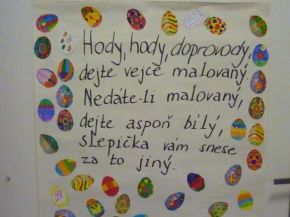 Hody, hody, doprovody,
dejte vejce malovaný.
Nedáte-li malovaný,
dejte aspoň bílý,
slepička vám snese
za to jiný.